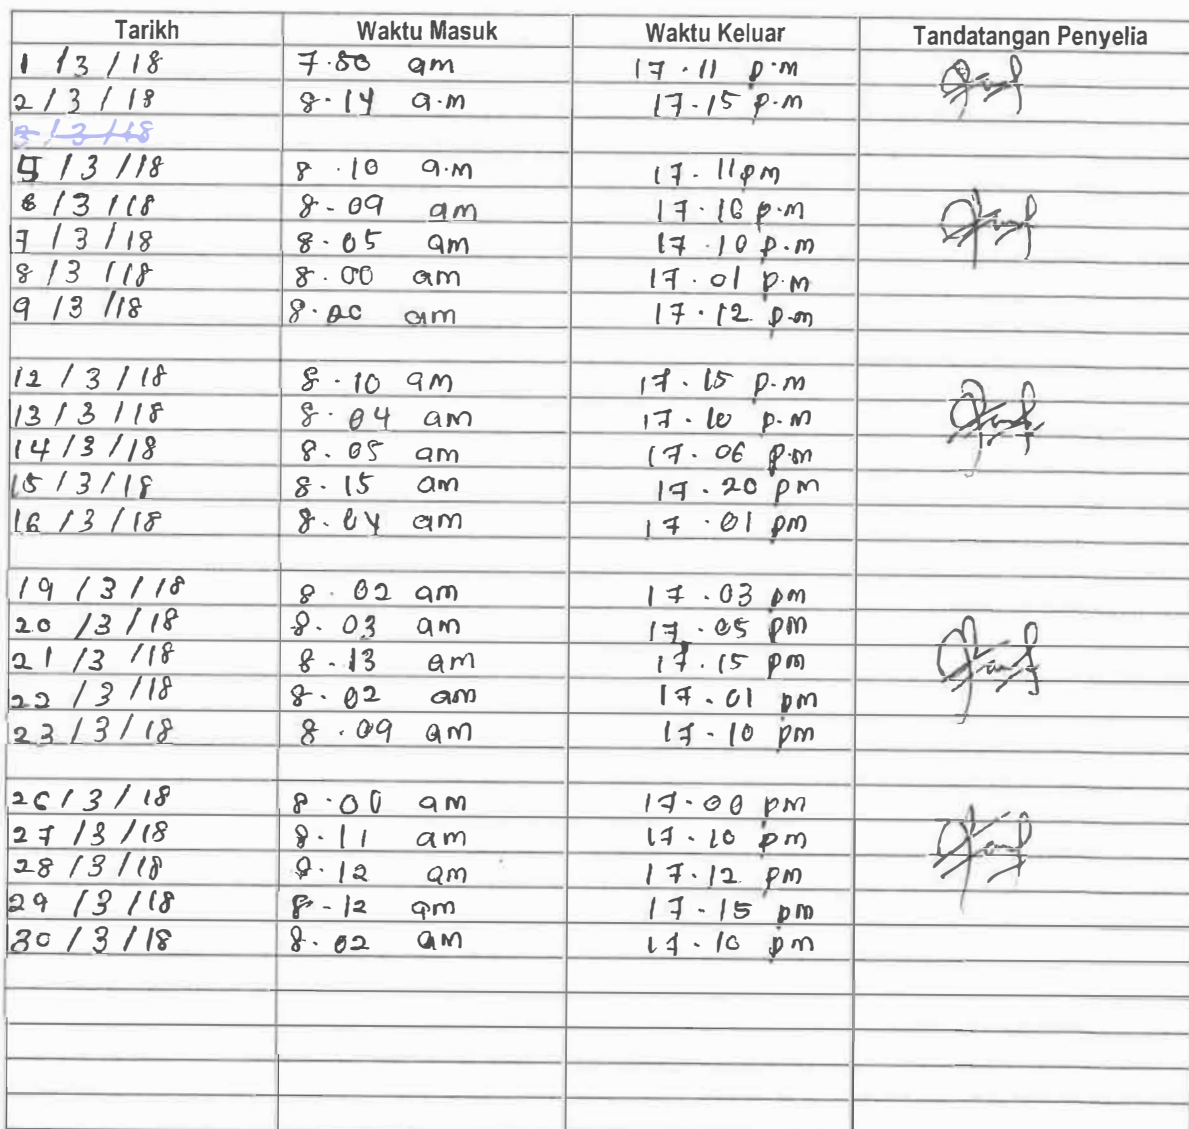 Tarikh Waktu Masuk Waktu Keluar Tandatangan Penyelia
1 / 3 / 18 7.50 am 17.11 p.m
2 / 3 / 18 8.14 a.m 17.15 p.m
3 / 3 / 18
5 / 3 / 18 8.10 a.m 17.11 pm
6 / 3 / 18 8.09 am 17.16 p.m
7 / 3 / 18 8.05 am 17.10 p.m
8 / 3 / 18 8.00 am 17.01 p.m
9 / 3 / 18 8.00 am 17.12 p.m
12 / 3 / 18 8.10 am 17.15 p.m
13 / 3 / 18 8.04 am 17.10 p.m
14 / 3 / 18 8.05 am 17.06 p.m
15 / 3 / 18 8.15 am 17.20 pm
16 / 3 / 18 8.04 am 17.01 pm
19 / 3 / 18 8.02 am 17.03 pm
20 / 3 / 18 8.03 am 17.05 pm
21 / 3 / 18 8.13 am 17.15 pm
22 / 3 / 18 8.02 am 17.01 pm
23 / 3 / 18 8.09 am 17.10 pm
26 / 3 / 18 8.00 am 17.00 pm
27 / 3 / 18 8.11 am 17.10 pm
28 / 3 / 18 8.12 am 17.12 pm
29 / 3 / 18 8-12 am 17.15 pm
30 / 3 / 18 8.02 am 17.10 pm